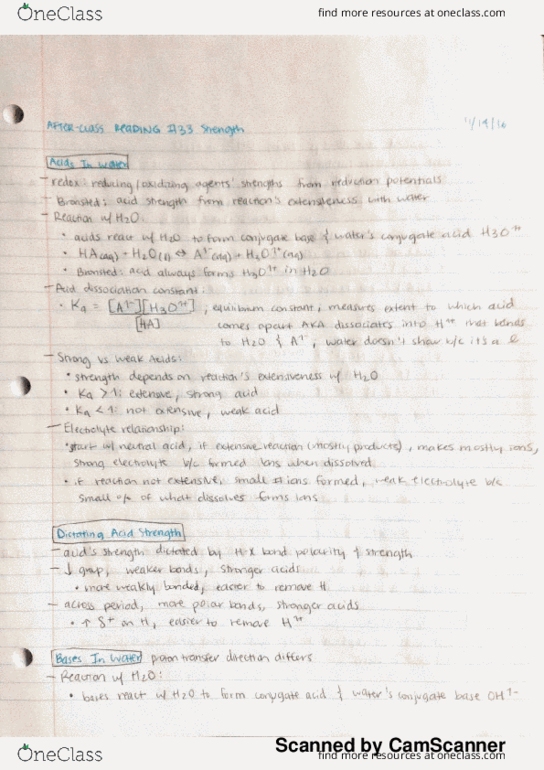 OneClass
find more resources at oneclass.com
AFTER-CLASS READING #33 Strength
11/14/16
Acids In Water
- redox: reducing/oxidizing agents' strengths from reduction potentials
- Bronsted: acid strength from reaction's extensiveness with water
- Reaction w/ H₂O:
• acids react w/ H₂O to form conjugate base & water's conjugate acid H3O¹⁺
• HA(aq) + H₂O(l) ⇔ A¹⁻(aq) + H₃O¹⁺(aq)
• Bronsted: acid always forms H₃O¹⁺ in H₂O
- Acid dissociation constant:
• Ka = [A¹⁻][H3O¹⁺] / [HA], equilibrium constant, measures extent to which acid
comes apart AKA dissociates into H¹⁺ that bonds
to H₂O & A¹⁻, water doesn't show b/c it's a l
- Strong vs Weak Acids:
• strength depends on reaction's extensiveness w/ H₂O
• Ka > 1: extensive, strong acid
• Ka < 1: not extensive, weak acid
- Electrolyte relationship:
• start w/ neutral acid, if extensive reaction (mostly products), makes mostly ions,
strong electrolyte b/c formed ions when dissolved
• if reaction not extensive, small # ions formed, weak electrolyte b/c
small % of what dissolves forms ions
Dictating Acid Strength
- acid's strength dictated by H-X bond polarity & strength
- ↓ group, weaker bonds, stronger acids
• more weakly bonded, easier to remove H
- across period, more polar bonds, stronger acids
• ↑ δ⁺ on H, easier to remove H¹⁺
Bases In Water proton transfer direction differs
- Reaction w/ H₂O:
• bases react w/ H₂O to form conjugate acid & water's conjugate base OH¹⁻
Scanned by CamScanner
OneClass
find more resources at oneclass.com